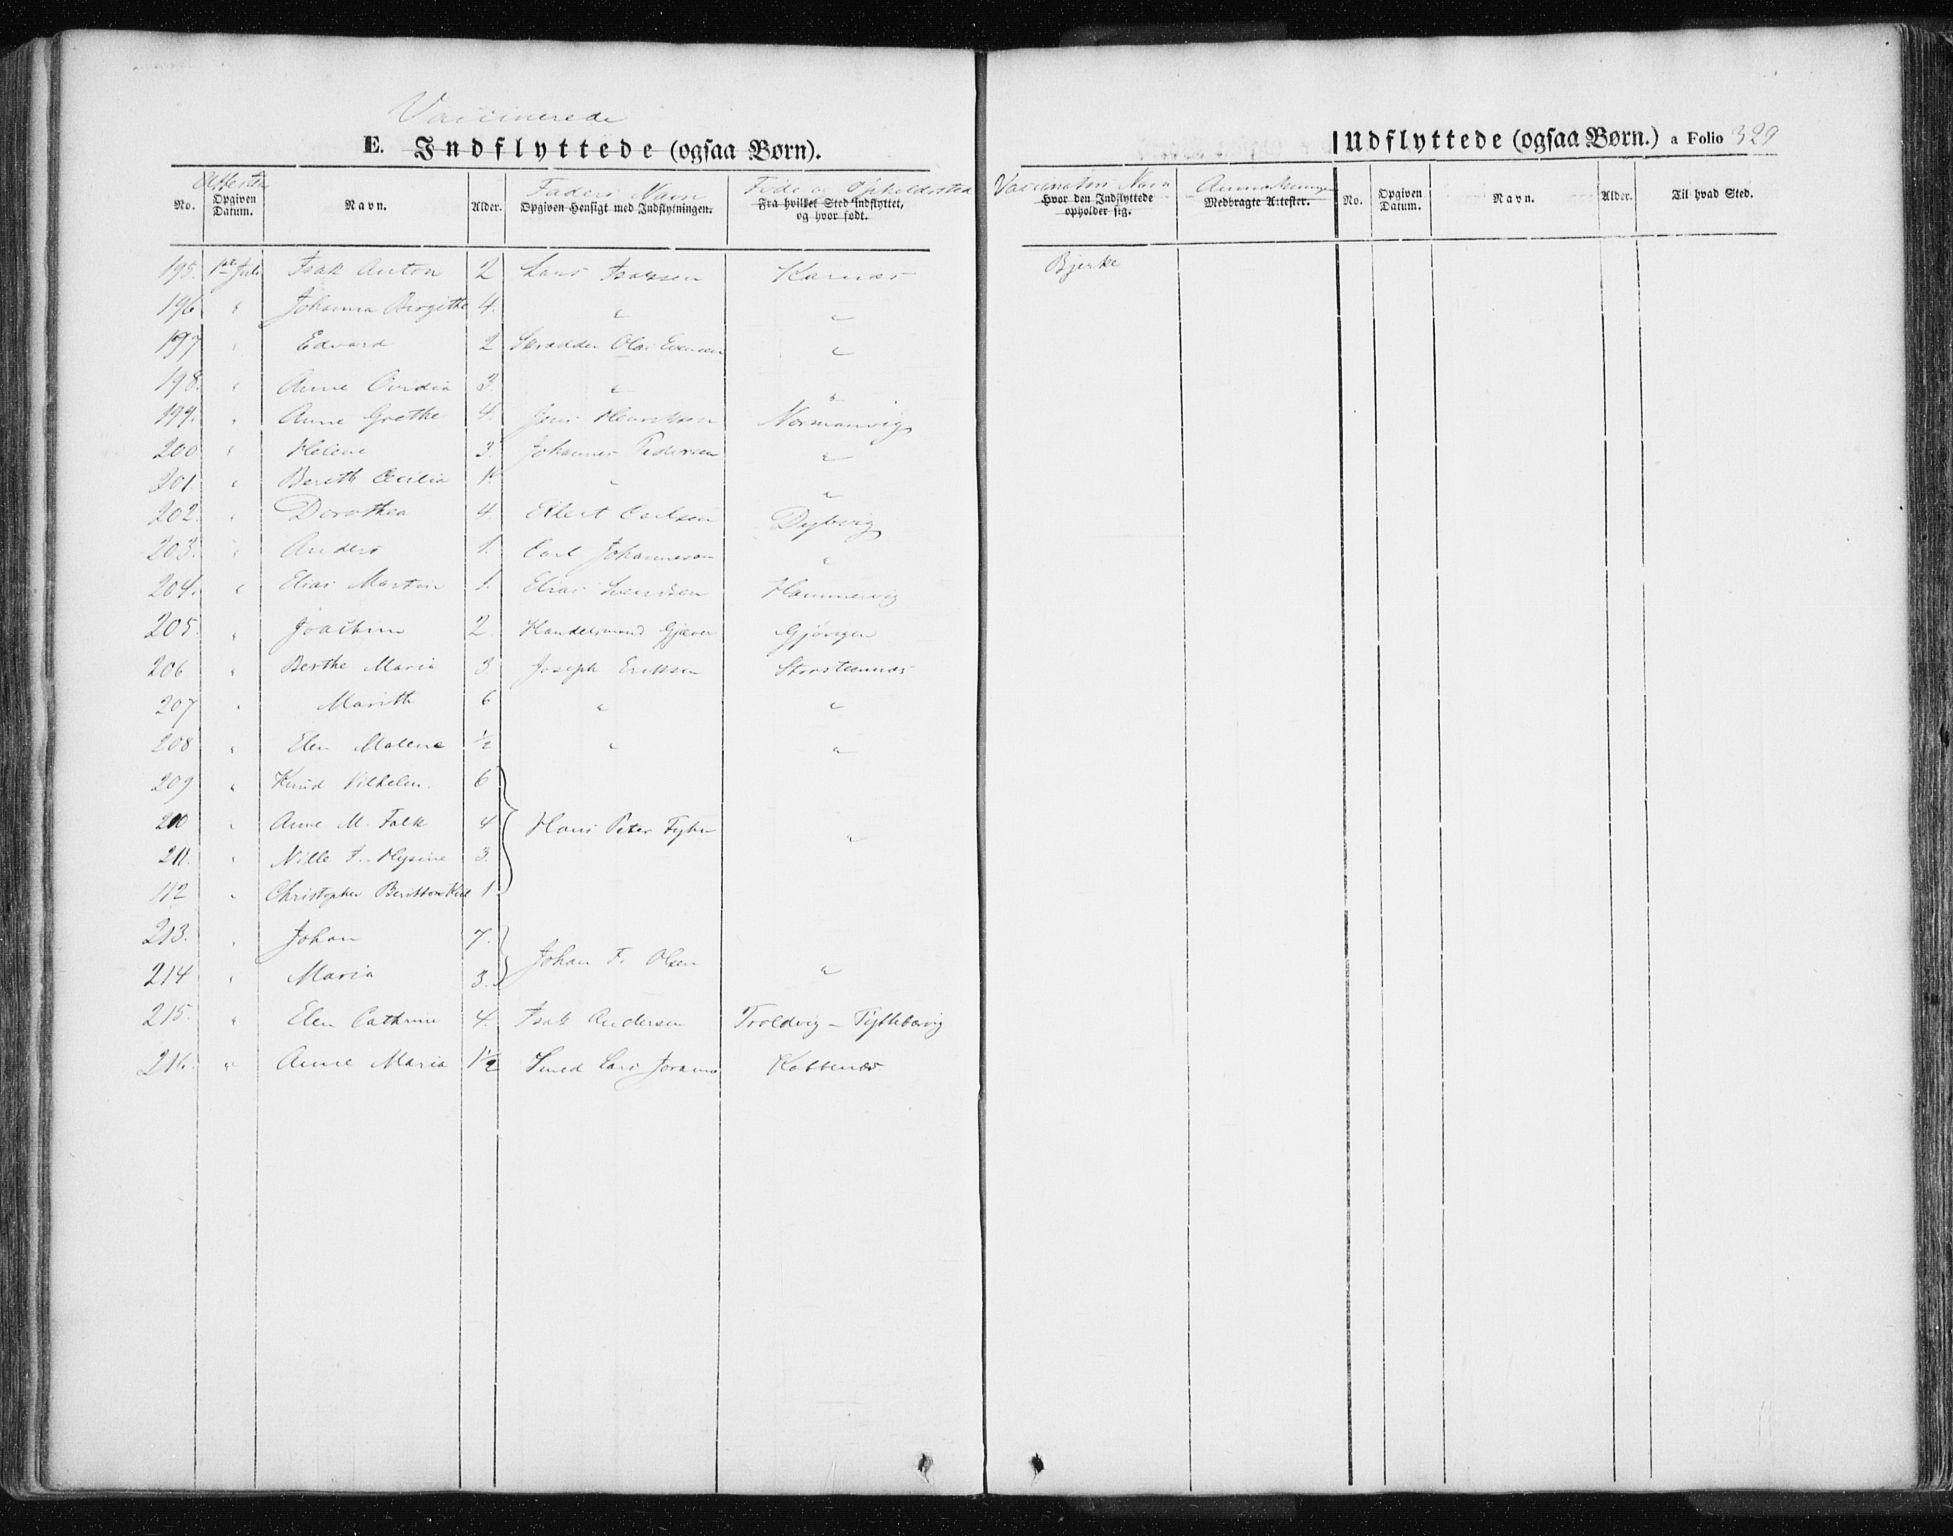 Vaccinerede
E. Indflyttede (ogsaa Børn).
Udflyttede (ogsaa Børn.) a Folio 329
Attestens Faders Navn Føde og Opholdssted Vaccinators Navn Anmærkninger
No. Opgiven Datum. Navn. Alder. Opgiven Hensigt med Indflytningen. Fra hvilket Sted indflyttet, og hvor født. Hvor den Indflyttede opholder sig. Medbragte Attester. No. Opgiven Datum. Navn. Alder. Til hvad Sted.
195. 1ste Juli Isak Anton 2 Lars Isaksen Karnæs Bjerke
196 " Johanna Birgithe 4. " "
197 " Edvard 2 Skrædder Ole "
198. " Anne 3. " "
199. " Anne Grethe 4. Jens Henriksen Normanvig
200 " Helene 3. Johannes Pedersen "
201. " Berith Cecilia 1. " "
202. " Dorothea 4. Ellert Carlsen Dybvig
203. " Anders 1. Carl Johannesen "
204. " Elias Martin 1. Elias Hammervig
205. " Joachim 2. Handelsmand Gjæver Gjøvigen
206 " Berthe Maria 3 Joseph Eriksen Storsteennæs
207 " Marith 6 " "
208 " Elen Malene ½ " "
209 " Knud Vilhelm. 6
210 " Anne M. Falk 4 Hans Peter "
211. " Nille F. 3.
112 " Christopher 1.
213. " Johan 7.
214 " Maria 3. Johan F. Olsen "
215. " Elen Cathrine 4. Isak Andersen Troldvig - Tyttebærvig
216. " Anne Maria 1½ Smed Lars Koppenæs